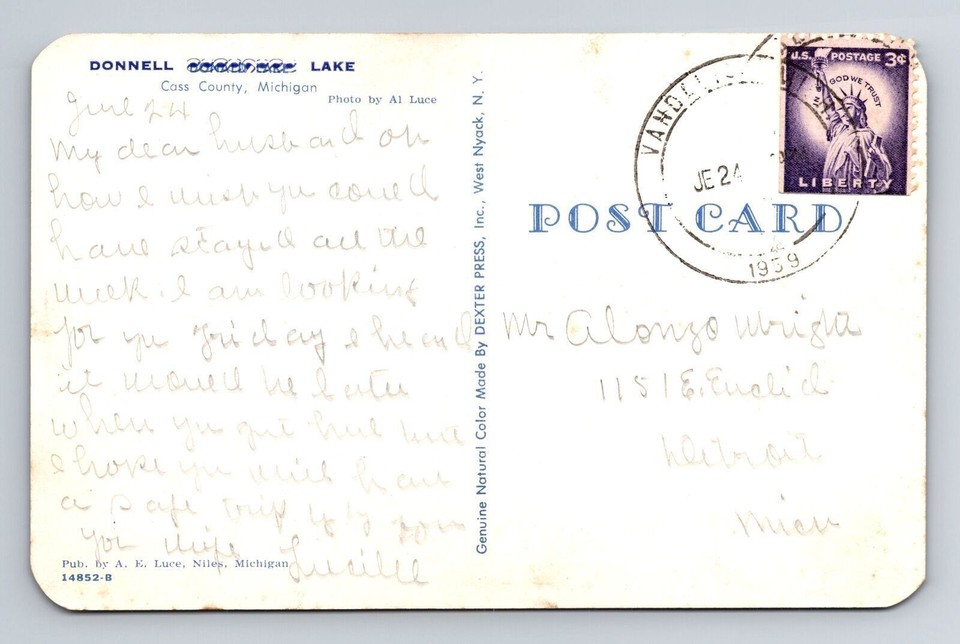 DONNELL LAKE
Cass County, Michigan
Photo by Al Luce
June 24
My dear husband oh
how I wish you could
have stayed all the
week. I am looking
for you Friday I heard
it would be later
when you get here but
I hope you will have
a safe trip by by from
your wife
Lucille
Pub. by A. E. Luce, Niles, Michigan
14852-B
Genuine Natural Color Made By DEXTER PRESS, Inc., West Nyack, N. Y.
POST CARD
VANDALIA
JE 24
1959
U.S. POSTAGE 3¢
IN GOD WE TRUST
LIBERTY
Mr Alonzo Wright
1151 E. Euclid
Detroit
Mich